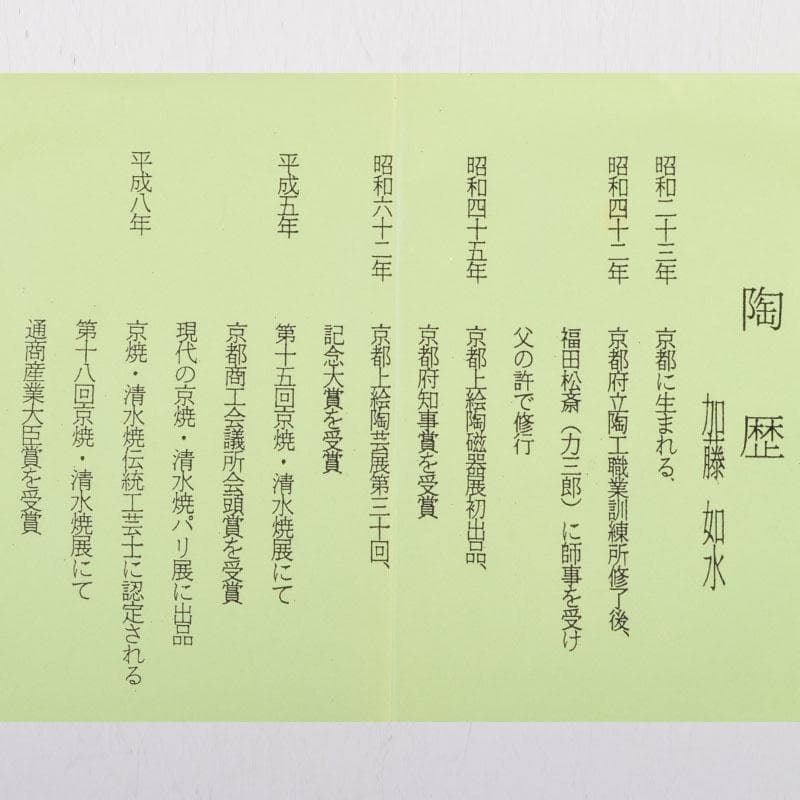 陶歴
加藤 如水
昭和二十三年 京都に生まれる、
昭和四十二年 京都府立陶工職業訓練所修了後、
福田松斎（力三郎）に師事を受け
父の許で修行
昭和四十五年 京都上絵陶磁器展初出品、
京都府知事賞を受賞
昭和六十二年 京都上絵陶芸展第三十回、
記念大賞を受賞
平成五年 第十五回京焼・清水焼展にて
京都商工会議所会頭賞を受賞
現代の京焼・清水焼パリ展に出品
平成八年 京焼・清水焼伝統工芸士に認定される
第十八回京焼・清水焼展にて
通商産業大臣賞を受賞